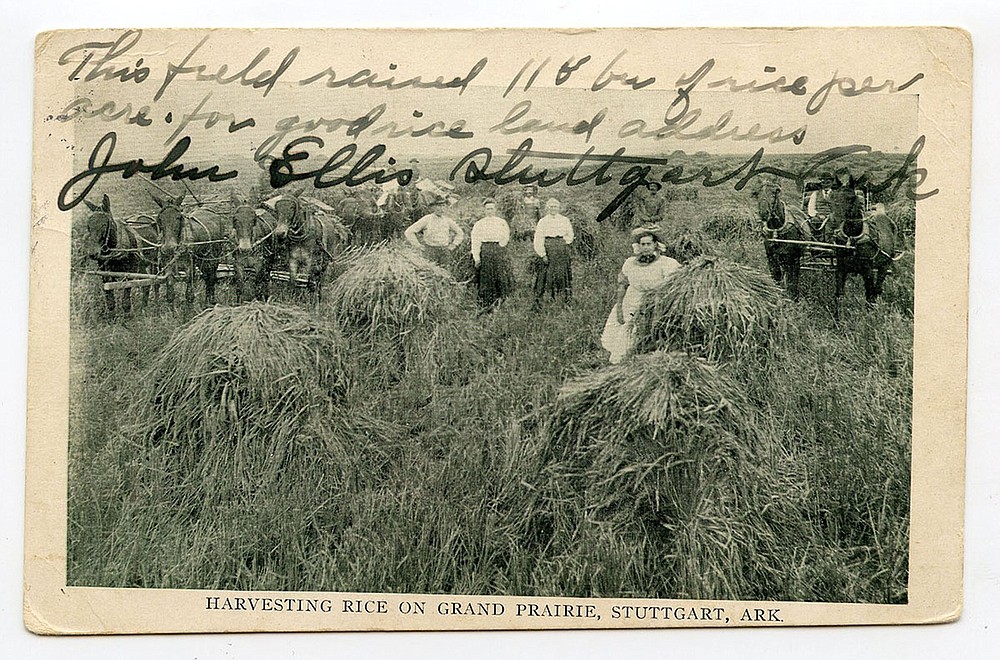 This field raised 118 bu of rice per
acre. for good rice land address
John Ellis Stuttgart Ark
HARVESTING RICE ON GRAND PRAIRIE, STUTTGART, ARK.